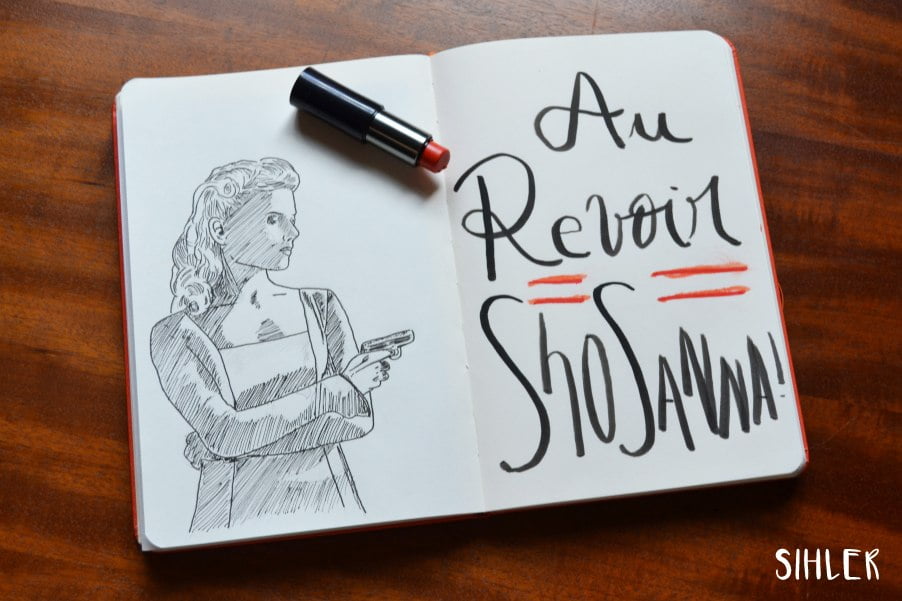 Au
Revoir
ShoSANNA!
SIHLER